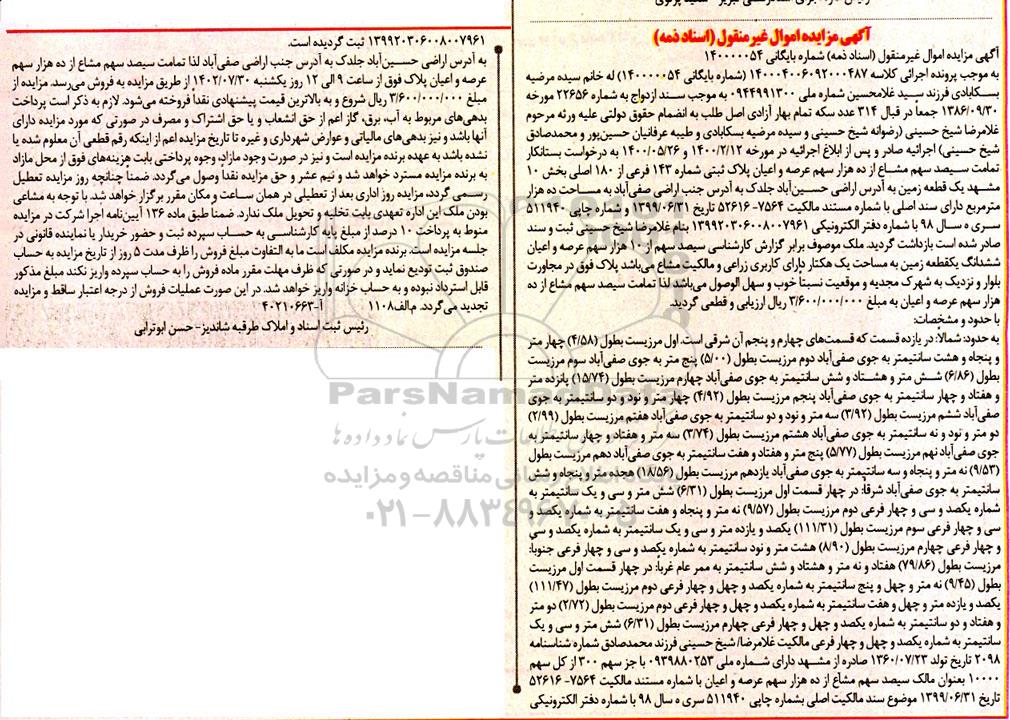 آگهی مزایده اموال غیرمنقول (اسناد ذمه)
آگهی مزایده اموال غیرمنقول (اسناد ذمه) شماره بایگانی ۱۴۰۰۰۰۰۵۴
به موجب پرونده اجرائی کلاسه ۱۴۰۰۰۴۰۰۶۰۹۲۰۰۰۴۸۷ (شماره بایگانی ۱۴۰۰۰۰۰۵۴) له خانم سیده مرضیه
بسکابادی فرزند سید غلامحسین شماره ملی ۰۹۴۴۹۹۱۳۰۰ به موجب سند ازدواج به شماره ۲۲۶۵۶ مورخه
۱۳۸۶/۰۹/۳۰ جمعاً در قبال ۳۱۴ عدد سکه تمام بهار آزادی اصل طلب به انضمام حقوق دولتی علیه ورثه مرحوم
غلامرضا شیخ حسینی (رضوانه شیخ حسینی و سیده مرضیه بسکابادی و طیبه عرفانیان حسین‌پور و محمدصادق
شیخ حسینی) اجرائیه صادر و پس از ابلاغ اجرائیه در مورخه ۱۴۰۰/۲/۱۲ و ۱۴۰۰/۰۵/۲۶ به درخواست بستانکار
تمامت سیصد سهم مشاع از ده هزار سهم عرصه و اعیان پلاک ثبتی شماره ۱۴۳ فرعی از ۱۸۰ اصلی بخش ۱۰
مشهد یک قطعه زمین به آدرس اراضی حسین‌آباد جلدک به آدرس جنب اراضی صفی‌آباد به مساحت ده هزار
مترمربع دارای سند اصلی با شماره مستند مالکیت ۷۵۶۴- ۵۲۶۱۶ تاریخ ۱۳۹۹/۰۶/۳۱ و شماره چاپی ۵۱۱۹۴۰
سری ه سال ۹۸ با شماره دفتر الکترونیکی ۱۳۹۹۲۰۳۰۶۰۰۸۰۰۷۹۶۱ بنام غلامرضا شیخ حسینی ثبت و سند
صادر شده است بازداشت گردید. ملک موصوف برابر گزارش کارشناسی سیصد سهم از ۱۰ هزار سهم عرصه و اعیان
ششدانگ یکقطعه زمین به مساحت یک هکتار دارای کاربری زراعی و مالکیت مشاع می‌باشد پلاک فوق در مجاورت
بلوار و نزدیک به شهرک مجدیه و موقعیت نسبتاً خوب و سهل الوصول می‌باشد لذا تمامت سیصد سهم مشاع از ده
هزار سهم عرصه و اعیان به مبلغ ۳/۶۰۰/۰۰۰/۰۰۰ ریال ارزیابی و قطعی گردید.
با حدود و مشخصات:
به حدود: شمالاً: در یازده قسمت که قسمت‌های چهارم و پنجم آن شرقی است. اول مرزیست بطول (۴/۵۸) چهار متر
و پنجاه و هشت سانتیمتر به جوی صفی‌آباد دوم مرزیست بطول (۵/۰۰) پنج متر به جوی صفی‌آباد سوم مرزیست
بطول (۶/۸۶) شش متر و هشتاد و شش سانتیمتر به جوی صفی‌آباد چهارم مرزیست بطول (۱۵/۷۴) پانزده متر
و هفتاد و چهار سانتیمتر به جوی صفی‌آباد پنجم مرزیست بطول (۴/۹۲) چهار متر و نود و دو سانتیمتر به جوی
صفی‌آباد ششم مرزیست بطول (۳/۹۲) سه متر و نود و دو سانتیمتر به جوی صفی‌آباد هفتم مرزیست بطول (۲/۹۹)
دو متر و نود و نه سانتیمتر به جوی صفی‌آباد هشتم مرزیست بطول (۳/۷۴) سه متر و هفتاد و چهار سانتیمتر به
جوی صفی‌آباد نهم مرزیست بطول (۵/۷۷) پنج متر و هفتاد و هفت سانتیمتر به جوی صفی‌آباد دهم مرزیست بطول
(۹/۵۳) نه متر و پنجاه و سه سانتیمتر به جوی صفی‌آباد یازدهم مرزیست بطول (۱۸/۵۶) هجده متر و پنجاه و شش
سانتیمتر به جوی صفی‌آباد شرقاً: در چهار قسمت اول مرزیست بطول (۶/۳۱) شش متر و سی و یک سانتیمتر به
شماره یکصد و سی و چهار فرعی دوم مرزیست بطول (۹/۵۷) نه متر و پنجاه و هفت سانتیمتر به شماره یکصد و
سی و چهار فرعی سوم مرزیست بطول (۱۱۱/۳۱) یکصد و یازده متر و سی و یک سانتیمتر به شماره یکصد و سی
و چهار فرعی چهارم مرزیست بطول (۸/۹۰) هشت متر و نود سانتیمتر به شماره یکصد و سی و چهار فرعی جنوباً:
مرزیست بطول (۷۹/۸۶) هفتاد و نه متر و هشتاد و شش سانتیمتر به ممر عام غرباً: در چهار قسمت اول مرزیست
بطول (۹/۴۵) نه متر و چهل و پنج سانتیمتر به شماره یکصد و چهل و چهار فرعی دوم مرزیست بطول (۱۱۱/۴۷)
یکصد و یازده متر و چهل و هفت سانتیمتر به شماره یکصد و چهل و چهار فرعی دوم مرزیست بطول (۲/۷۲) دو متر
و هفتاد و دو سانتیمتر به شماره یکصد و چهل و چهار فرعی چهارم مرزیست بطول (۶/۳۱) شش متر و سی و یک
سانتیمتر به شماره یکصد و چهل و چهار فرعی مالکیت غلامرضا/ شیخ حسینی فرزند محمدصادق شماره شناسنامه
۲۰۹۸ تاریخ تولد ۱۳۶۰/۰۷/۲۳ صادره از مشهد دارای شماره ملی ۰۹۳۹۸۸۰۲۵۳ با جز سهم ۳۰۰ از کل سهم
۱۰۰۰۰ بعنوان مالک سیصد سهم مشاع از ده هزار سهم عرصه و اعیان با شماره مستند مالکیت ۷۵۶۴- ۵۲۶۱۶
تاریخ ۱۳۹۹/۰۶/۳۱ موضوع سند مالکیت اصلی بشماره چاپی ۵۱۱۹۴۰ سری ه سال ۹۸ با شماره دفتر الکترونیکی
۱۳۹۹۲۰۳۰۶۰۰۸۰۰۷۹۶۱ ثبت گردیده است.
به آدرس اراضی حسین‌آباد جلدک به آدرس جنب اراضی صفی‌آباد لذا تمامت سیصد سهم مشاع از ده هزار سهم
عرصه و اعیان پلاک فوق از ساعت ۹ الی ۱۲ روز یکشنبه ۱۴۰۲/۰۷/۳۰ از طریق مزایده به فروش می‌رسد. مزایده از
مبلغ ۳/۶۰۰/۰۰۰/۰۰۰ ریال شروع و به بالاترین قیمت پیشنهادی نقداً فروخته می‌شود. لازم به ذکر است پرداخت
بدهی‌های مربوط به آب، برق، گاز اعم از حق انشعاب و یا حق اشتراک و مصرف در صورتی که مورد مزایده دارای
آنها باشد و نیز بدهی‌های مالیاتی و عوارض شهرداری و غیره تا تاریخ مزایده اعم از اینکه رقم قطعی آن معلوم شده یا
نشده باشد به عهده برنده مزایده است و نیز در صورت وجود مازاد، وجوه پرداختی بابت هزینه‌های فوق از محل مازاد
به برنده مزایده مسترد خواهد شد و نیم عشر و حق مزایده نقداً وصول می‌گردد. ضمناً چنانچه روز مزایده تعطیل
رسمی گردد، مزایده روز اداری بعد از تعطیلی در همان ساعت و مکان مقرر برگزار خواهد شد. با توجه به مشاعی
بودن ملک این اداره تعهدی بابت تخلیه و تحویل ملک ندارد. ضمناً طبق ماده ۱۳۶ آیین‌نامه اجرا شرکت در مزایده
منوط به پرداخت ۱۰ درصد از مبلغ پایه کارشناسی به حساب سپرده ثبت و حضور خریدار یا نماینده قانونی در
جلسه مزایده است. برنده مزایده مکلف است ما به التفاوت مبلغ فروش را ظرف مدت ۵ روز از تاریخ مزایده به حساب
صندوق ثبت تودیع نماید و در صورتی که ظرف مهلت مقرر مانده فروش را به حساب سپرده واریز نکند مبلغ مذکور
قابل استرداد نبوده و به حساب خزانه واریز خواهد شد. در این صورت عملیات فروش از درجه اعتبار ساقط و مزایده
تجدید می‌گردد. م.الف۱۱۰۸ آ-۴۰۲۱۰۶۶۳
رئیس ثبت اسناد و املاک طرقبه شاندیز- حسن ابوترابی
ParsNamadData
پایگاه اطلاع رسانی مناقصه و مزایده
۰۲۱-۸۸۳۴۹۶۷۰-۵